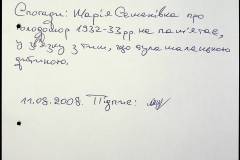 Спогади: Мар'я Семенівна про
голодомор 1932-33рр не пам'ятає,
у зв'язку з тим, що була маленькою
дитиною.
11.08.2008. Підпис: